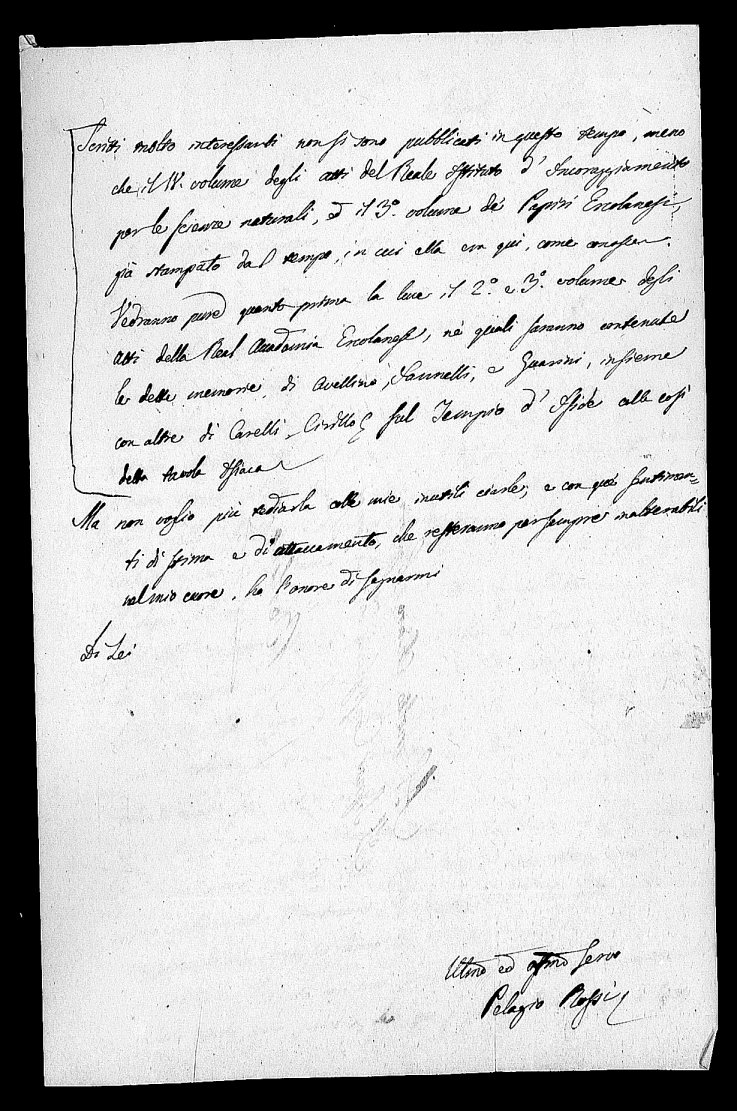 Scritti molto interessanti non si sono pubblicati in questo tempo, meno
che il IV. volume degli atti del Reale Istituto d'Incoraggiamento
per le scienze naturali, ed il 3º. volume de' Papiri Ercolanesi
già stampato dal tempo, in cui ella era qui, come conosce.
Vedranno pure quanto prima la luce il 2º. e 3º. volume degli
atti della Real Accademia Ercolanese, ne' quali saranno contenute
le dette memorie di Avellino, Iannelli, e Guarini, insieme
con altre di Carelli, Cirillo sul Tempio d'Iside alla così
detta tavola Isiaca
Ma non voglio più tediarla colle mie inutili ciarle, e con que' sentimen=
ti di stima e di attaccamento, che resteranno per sempre inalterabili
nel mio cuore, ho l'onore di segnarmi
Di Lei
Umo ed servo
Pelagio Rossi